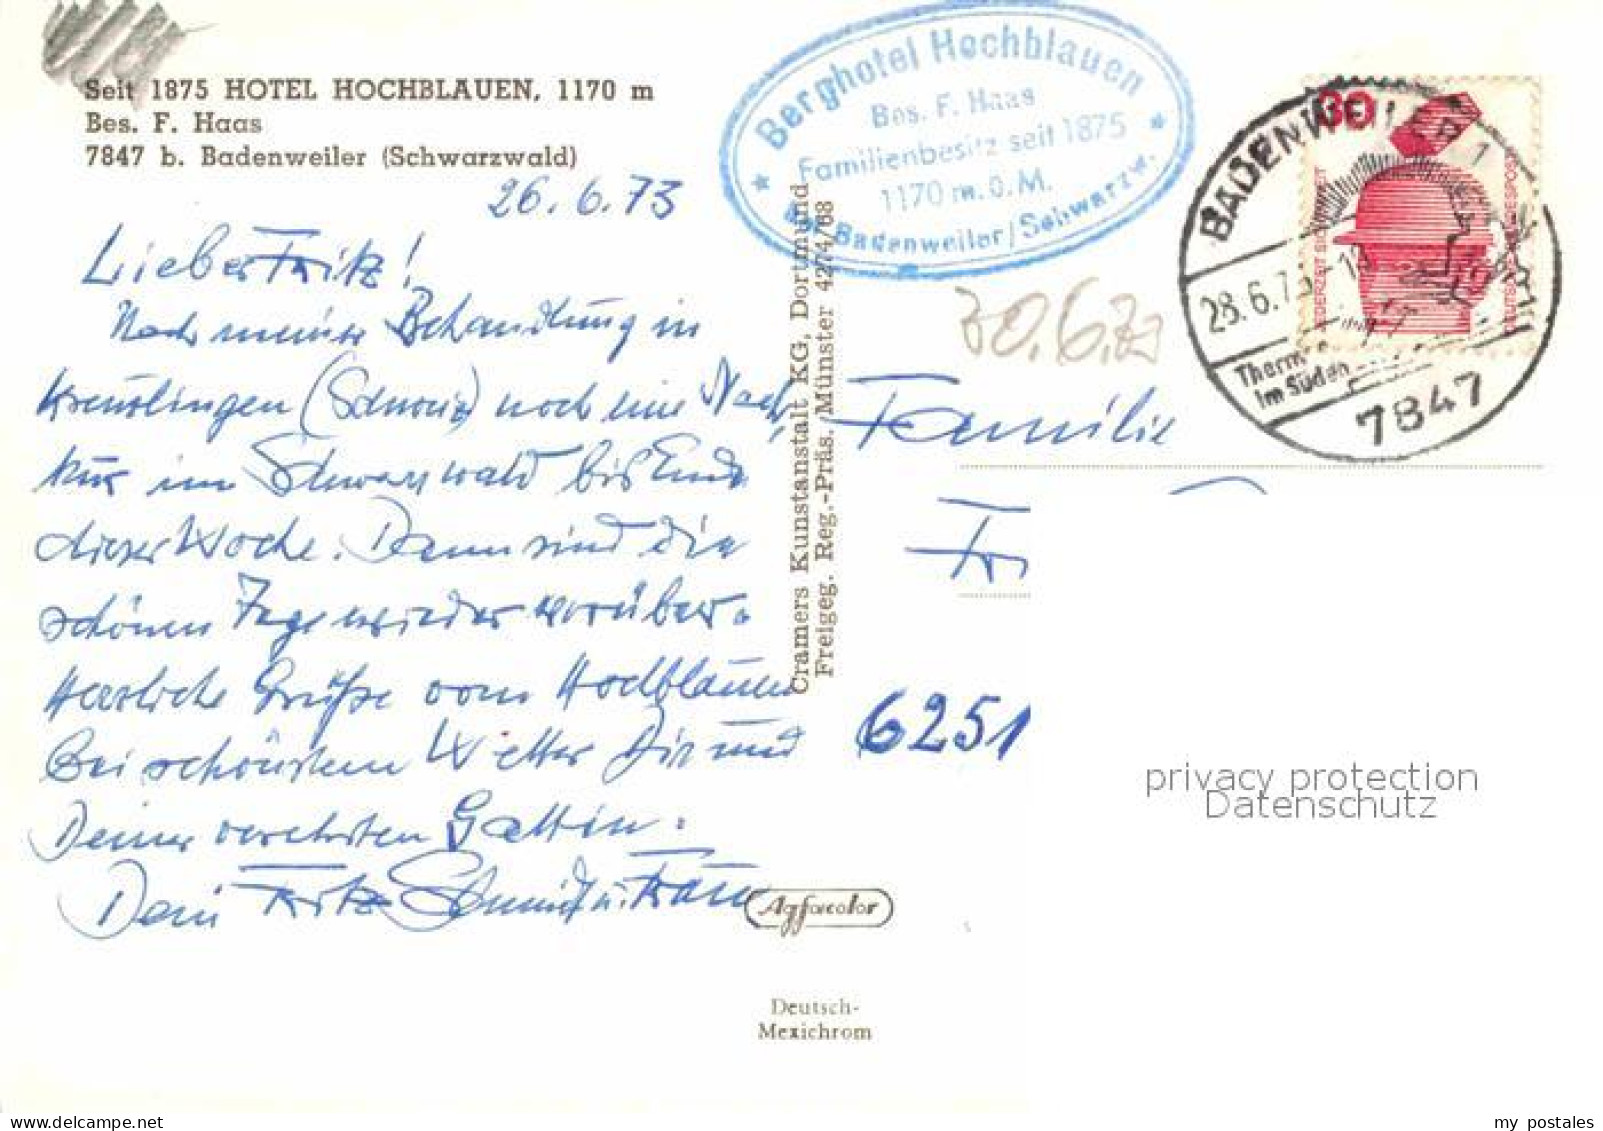 Seit 1875 HOTEL HOCHBLAUEN, 1170 m
Bes. F. Haas
7847 b. Badenweiler (Schwarzwald)
26.6.73
Lieber Fritz!
Nach meiner Behandlung in
Kreuzlingen (Schweiz) noch eine Nach
kur im Schwarzwald bis Ende
dieser Woche. Dann sind die
schönen Tage wieder vorüber.
Herzliche Grüße vom Hochblauen
bei schönstem Wetter Dir und
Deiner verehrten Gattin.
Dein Fritz Schmidt u. Frau
Berghotel Hochblauen
Bes. F. Haas
Familienbesitz seit 1875
1170 m.ü.M.
bei Badenweiler/Schwarzw.
Cramers Kunstanstalt KG, Dortmund
Freigeg. Reg.-Präs. Münster 4274/68
30
JEDERZEIT SICHERHEIT
DEUTSCHE BUNDESPOST
BADENWEILER 1
28.6.73-18
Therm
im Süden
7847
30.6.73
Familie
Fr
6251
privacy protection
Datenschutz
Agfacolor
Deutsch-
Mexichrom
my postales
www.delcampe.net